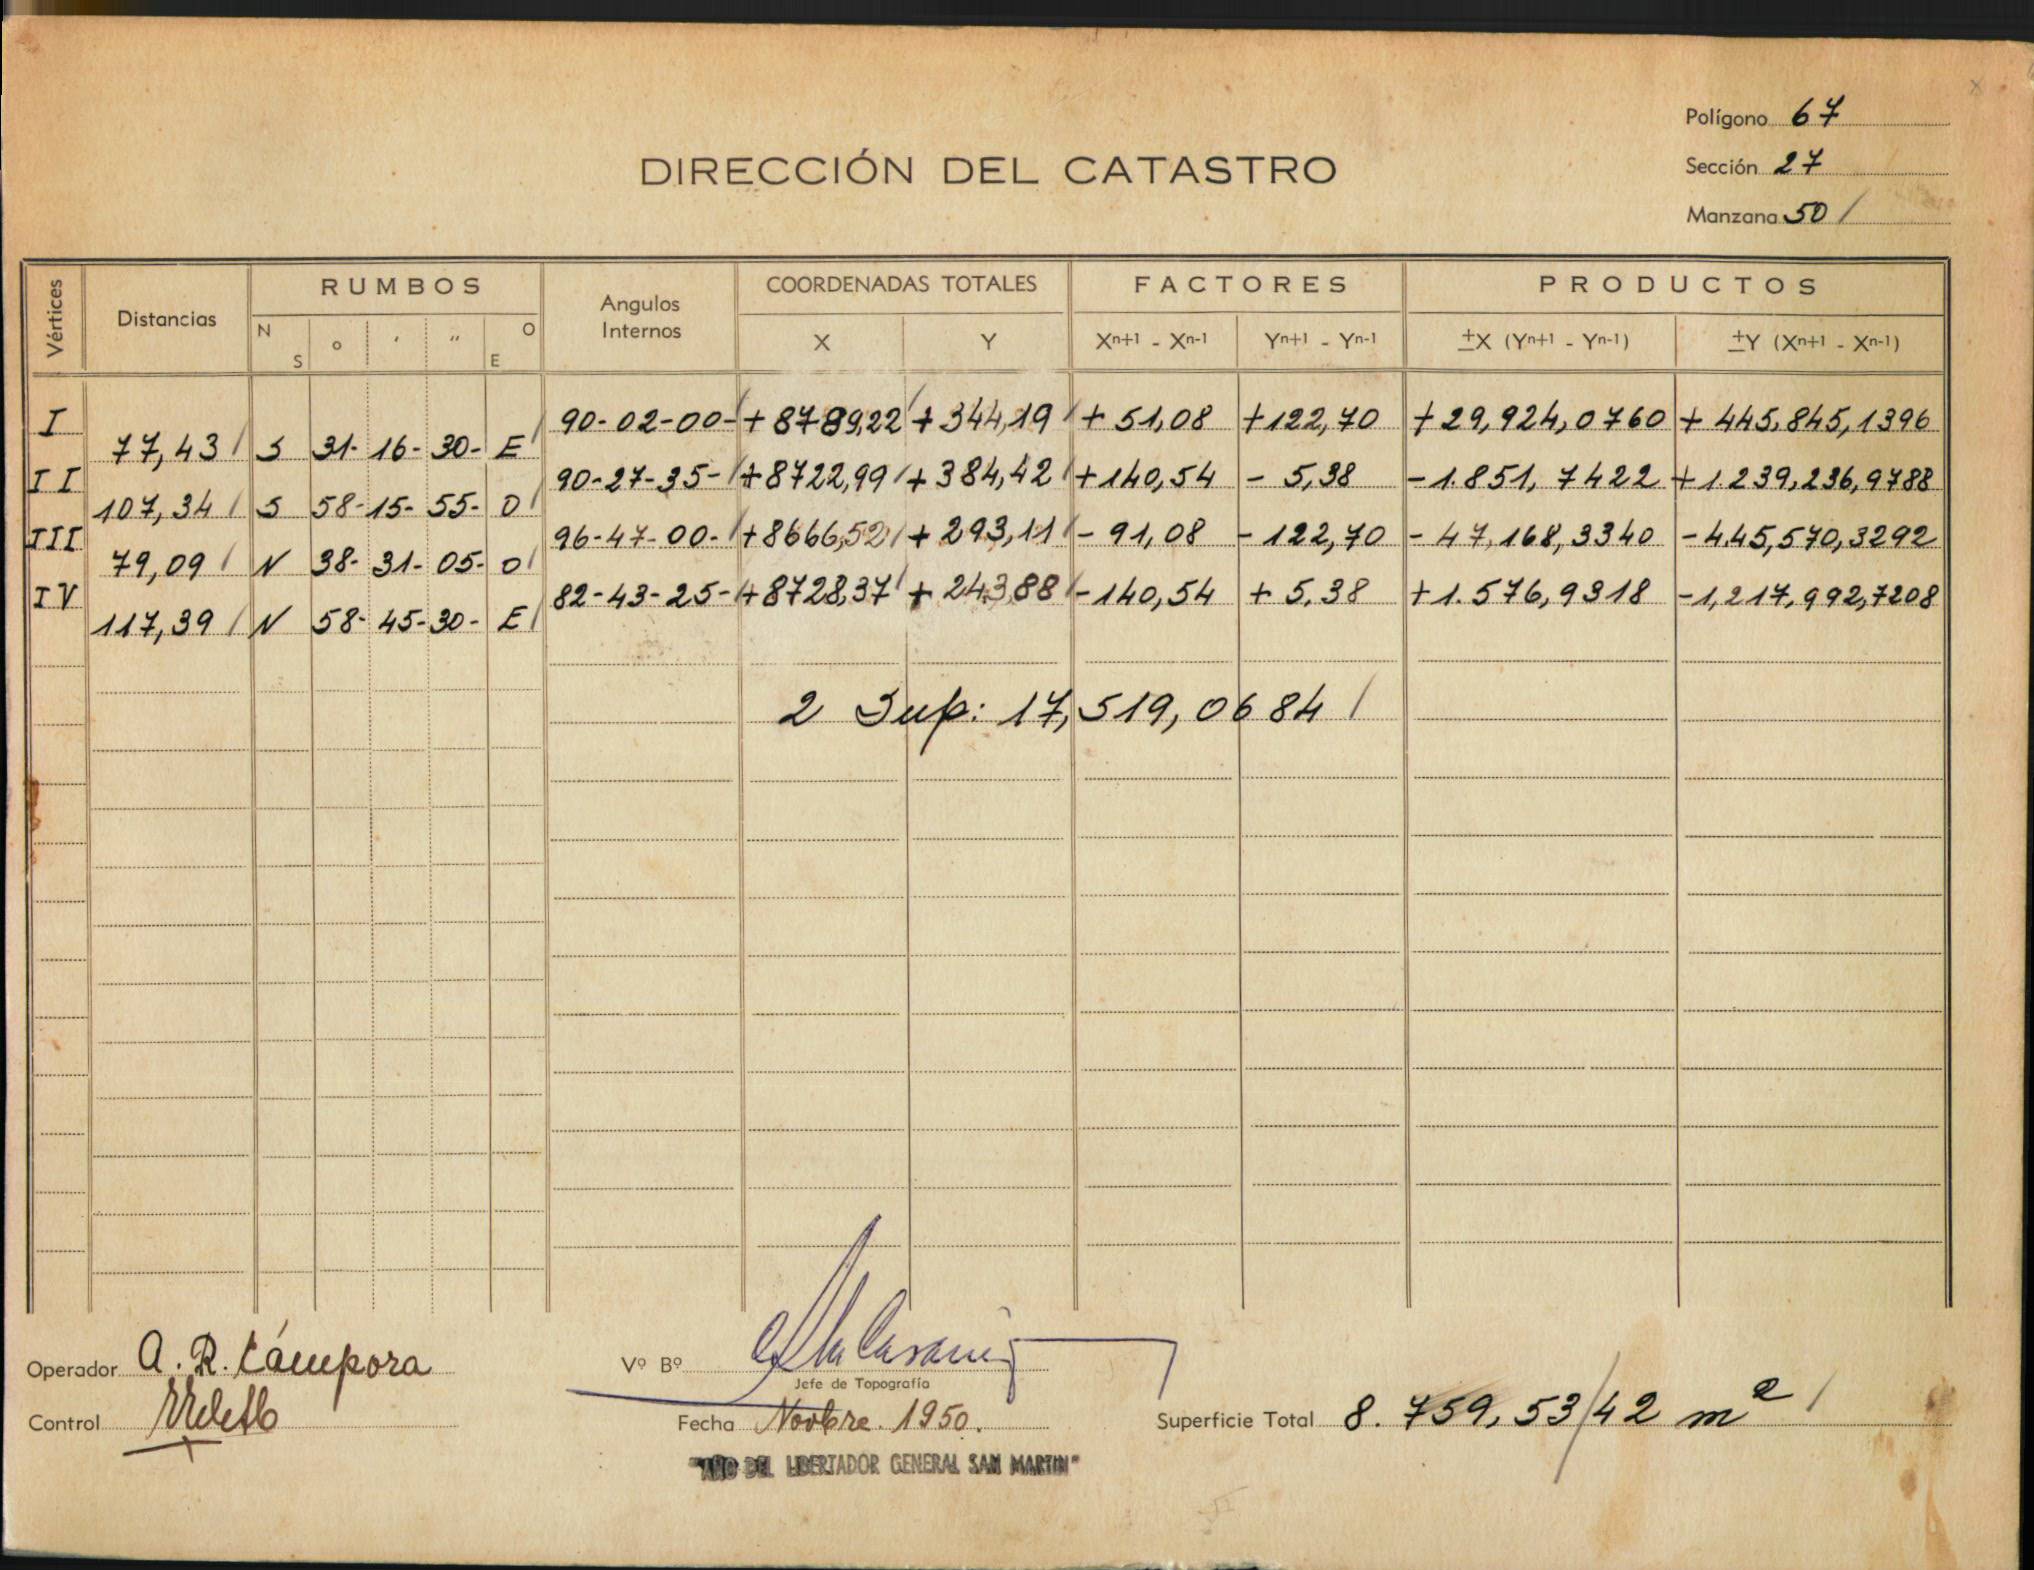 Polígono 67
DIRECCIÓN DEL CATASTRO
Sección 27
Manzana 50 /
Vértices Distancias RUMBOS N S ° ' " O E Angulos Internos COORDENADAS TOTALES X Y FACTORES Xn+1 - Xn-1 Yn+1 - Yn-1 PRODUCTOS ±X (Yn+1 - Yn-1) ±Y (Xn+1 - Xn-1)
I 90-02-00- / + 8789,22 / + 344,19 / + 51,08 + 122,70 + 29,924,0760 + 445,845,1396
77,43 / S 31- 16- 30- E /
II 90-27-35- / + 8722,99 / + 384,42 / + 140,54 - 5,38 - 1.851,7422 + 1.235,236,9788
107,34 / S 58- 15- 55- O /
III 96-47-00- / + 8666,52 / + 293,11 / - 51,08 - 122,70 - 47,168,3340 - 445,570,3292
79,09 / N 38- 31- 05- O /
IV 82-43-25- / + 8728,37 / + 243,88 / - 140,54 + 5,38 + 1.576,9318 - 1,217,992,7208
117,39 / N 58- 45- 30- E /
2 Sup: 17,519,0684 /
Operador A. R. Cámpora
Vº Bº
Jefe de Topografía
Control
Fecha Novbre. 1950.
Superficie Total 8.759,53/42 m² /
"AÑO DEL LIBERTADOR GENERAL SAN MARTIN"